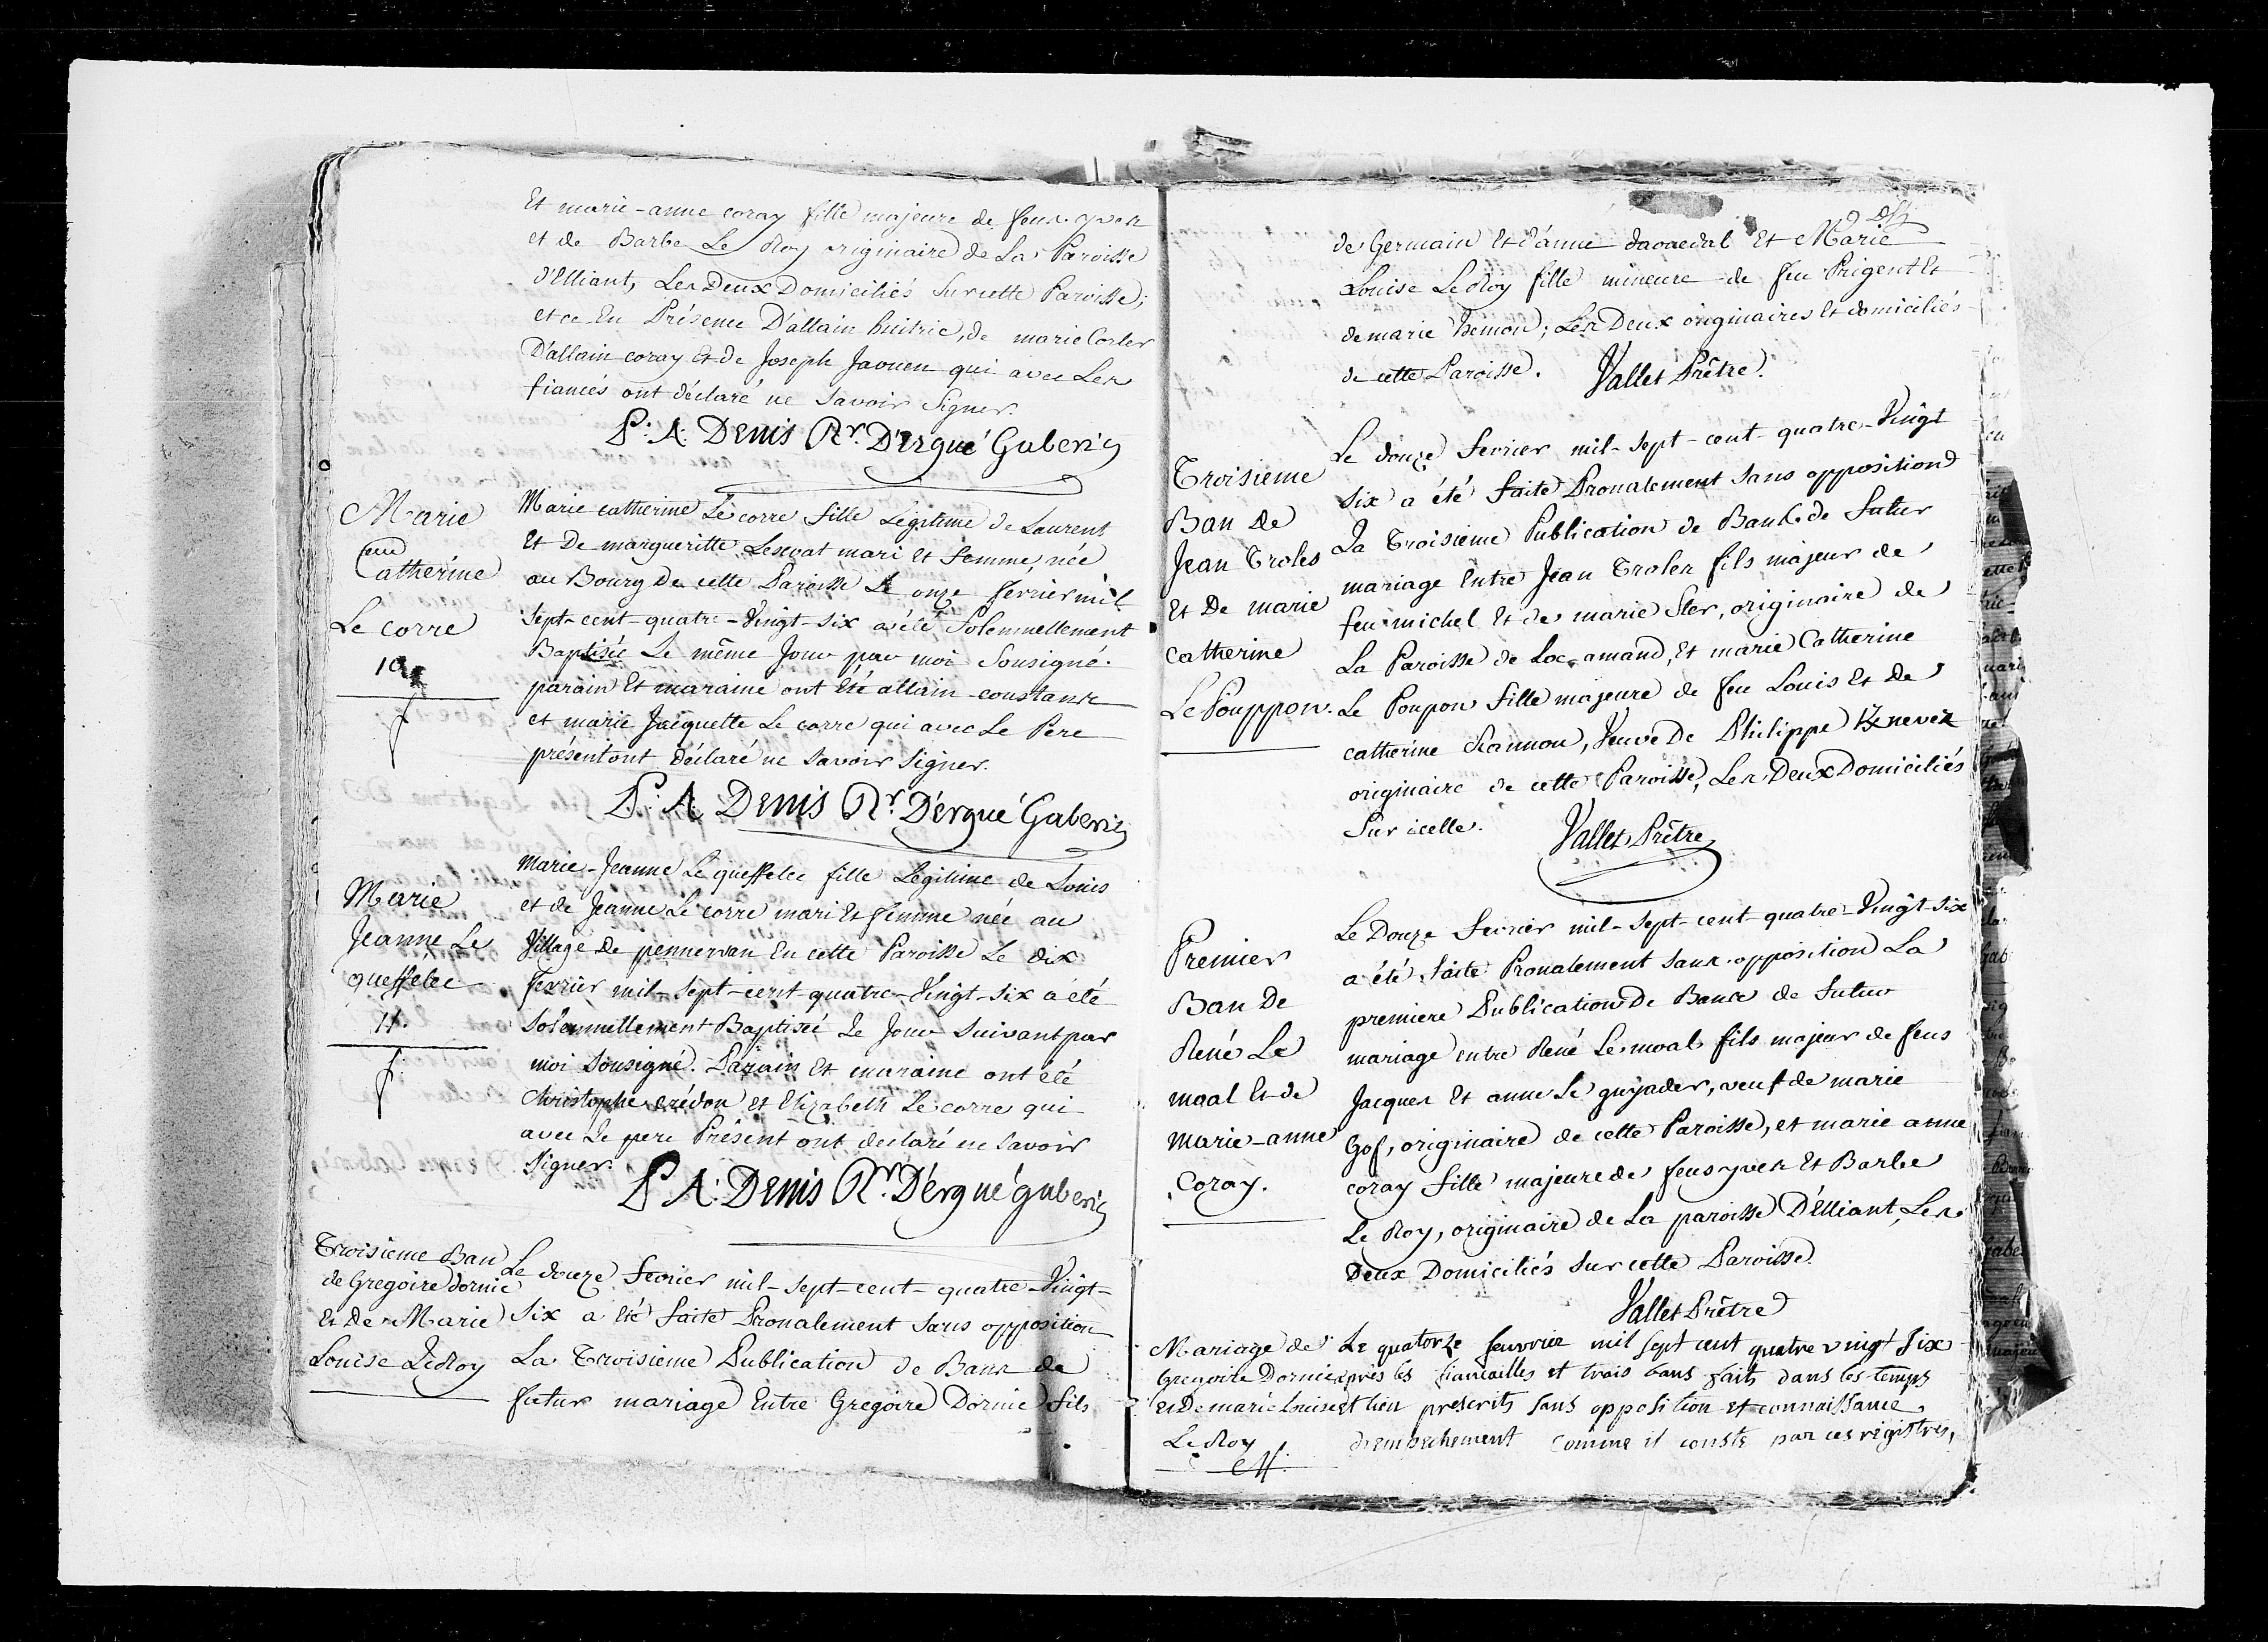 Et marie-anne coray fille majeure de feus yves
et de Barbe Le Roy originaire de La Paroisse
d'Elliant, Les Deux Domiciliés sur cette Paroisse;
et ce En Présence D'allain huitric, de marie Corler
D'allain coray Et de Joseph Jaouen qui avec Les
fiancés ont déclaré ne savoir signer.
P. A. Denis Rr. D'Ergué Gaberic
Marie
Catherine
Le corre
10
Marie catherine Le corre fille Légitime de Laurent
Et De margueritte Lescoat mari et femme, née
au Bourg de cette Paroisse Le onze fevrier mil
sept-cent-quatre-Vingt-six a été Solemnellement
Baptisée Le même Jour par moi Sousigné.
parain Et maraine ont Eté allain constans
et marie Jacquette Le corre qui avec Le Pere
présent ont déclaré ne savoir signer.
P. A Denis Rr. D'ergué Gaberic
Marie
Jeanne Le
queffelec
11.
marie-Jeanne Le queffelec fille Légitime de Louis
et de Jeanne Le corre mari Et femme née au
Village de pennervan En cette Paroisse Le dix
fevrier mil-sept-cent-quatre-Vingt-six a été
solemnellement Baptisée Le Jour suivant par
moi sousigné. Parain Et maraine ont été
christophe crédou et Elizabeth Le corre qui
avec Le pere Présent ont declaré ne savoir
signer.
P A. Denis Rr. D'ergué gaberic
Troisieme Ban
de Gregoire Dornic
Et de Marie
Louise Le Roy
Le douze fevrier mil-sept-cent-quatre-Vingt-
six a Eté faite Pronalement sans opposition
La Troisieme Publication de Bans de
futur mariage Entre Gregoire Dornic fils
de Germain Et d'anne Et Marie
Louise Le Roy fille mineure de feu Prigent Et
de marie hemon; Les Deux originaires Et domiciliés
de cette Paroisse. Vallet Prêtre.
Troisieme
Ban De
Jean Troles
Et De marie
catherine
Le Pouppon.
Le douze fevrier mil-sept-cent-quatre-Vingt
six a été faite Pronalement sans opposition
La Troisieme Publication de Bans de futur
mariage Entre Jean Troles fils majeur de
feu michel Et de marie Ster, originaire de
La Paroisse de Loc-amand, Et marie Catherine
Le Poupon fille majeure de feu Louis Et De
catherine Veuve De Philippe Kenevez
originaire de cette Paroisse, Les Deux Domiciliés
sur icelle. Vallet Prêtre
Premier
Ban De
René Le
moal Et de
marie-anne
Coray.
Le Douze fevrier mil-sept-cent-quatre-Vingt-six
a été faite Pronalement sans opposition La
premiere Publication De Bans de futur
mariage entre René Le moal fils majeur de feus
Jacques Et anne Le guyader, veuf de marie
Gof, originaire de cette Paroisse, et marie anne
coray fille majeure de feus yves Et Barbe
Le Roy, originaire de La paroisse D'Elliant, Les
Deux Domiciliés sur cette Paroisse.
Vallet Prêtre
Mariage de
Gregoire Dornic
Et De marie Louise
Le Roy
Le quatorze fevvrier mil sept cent quatre vingt six
après les fiancailles et trois bans faits dans les temps
et lieu prescrits sans opposition et connaissance
d'empechement comme il conste par ces régistres,